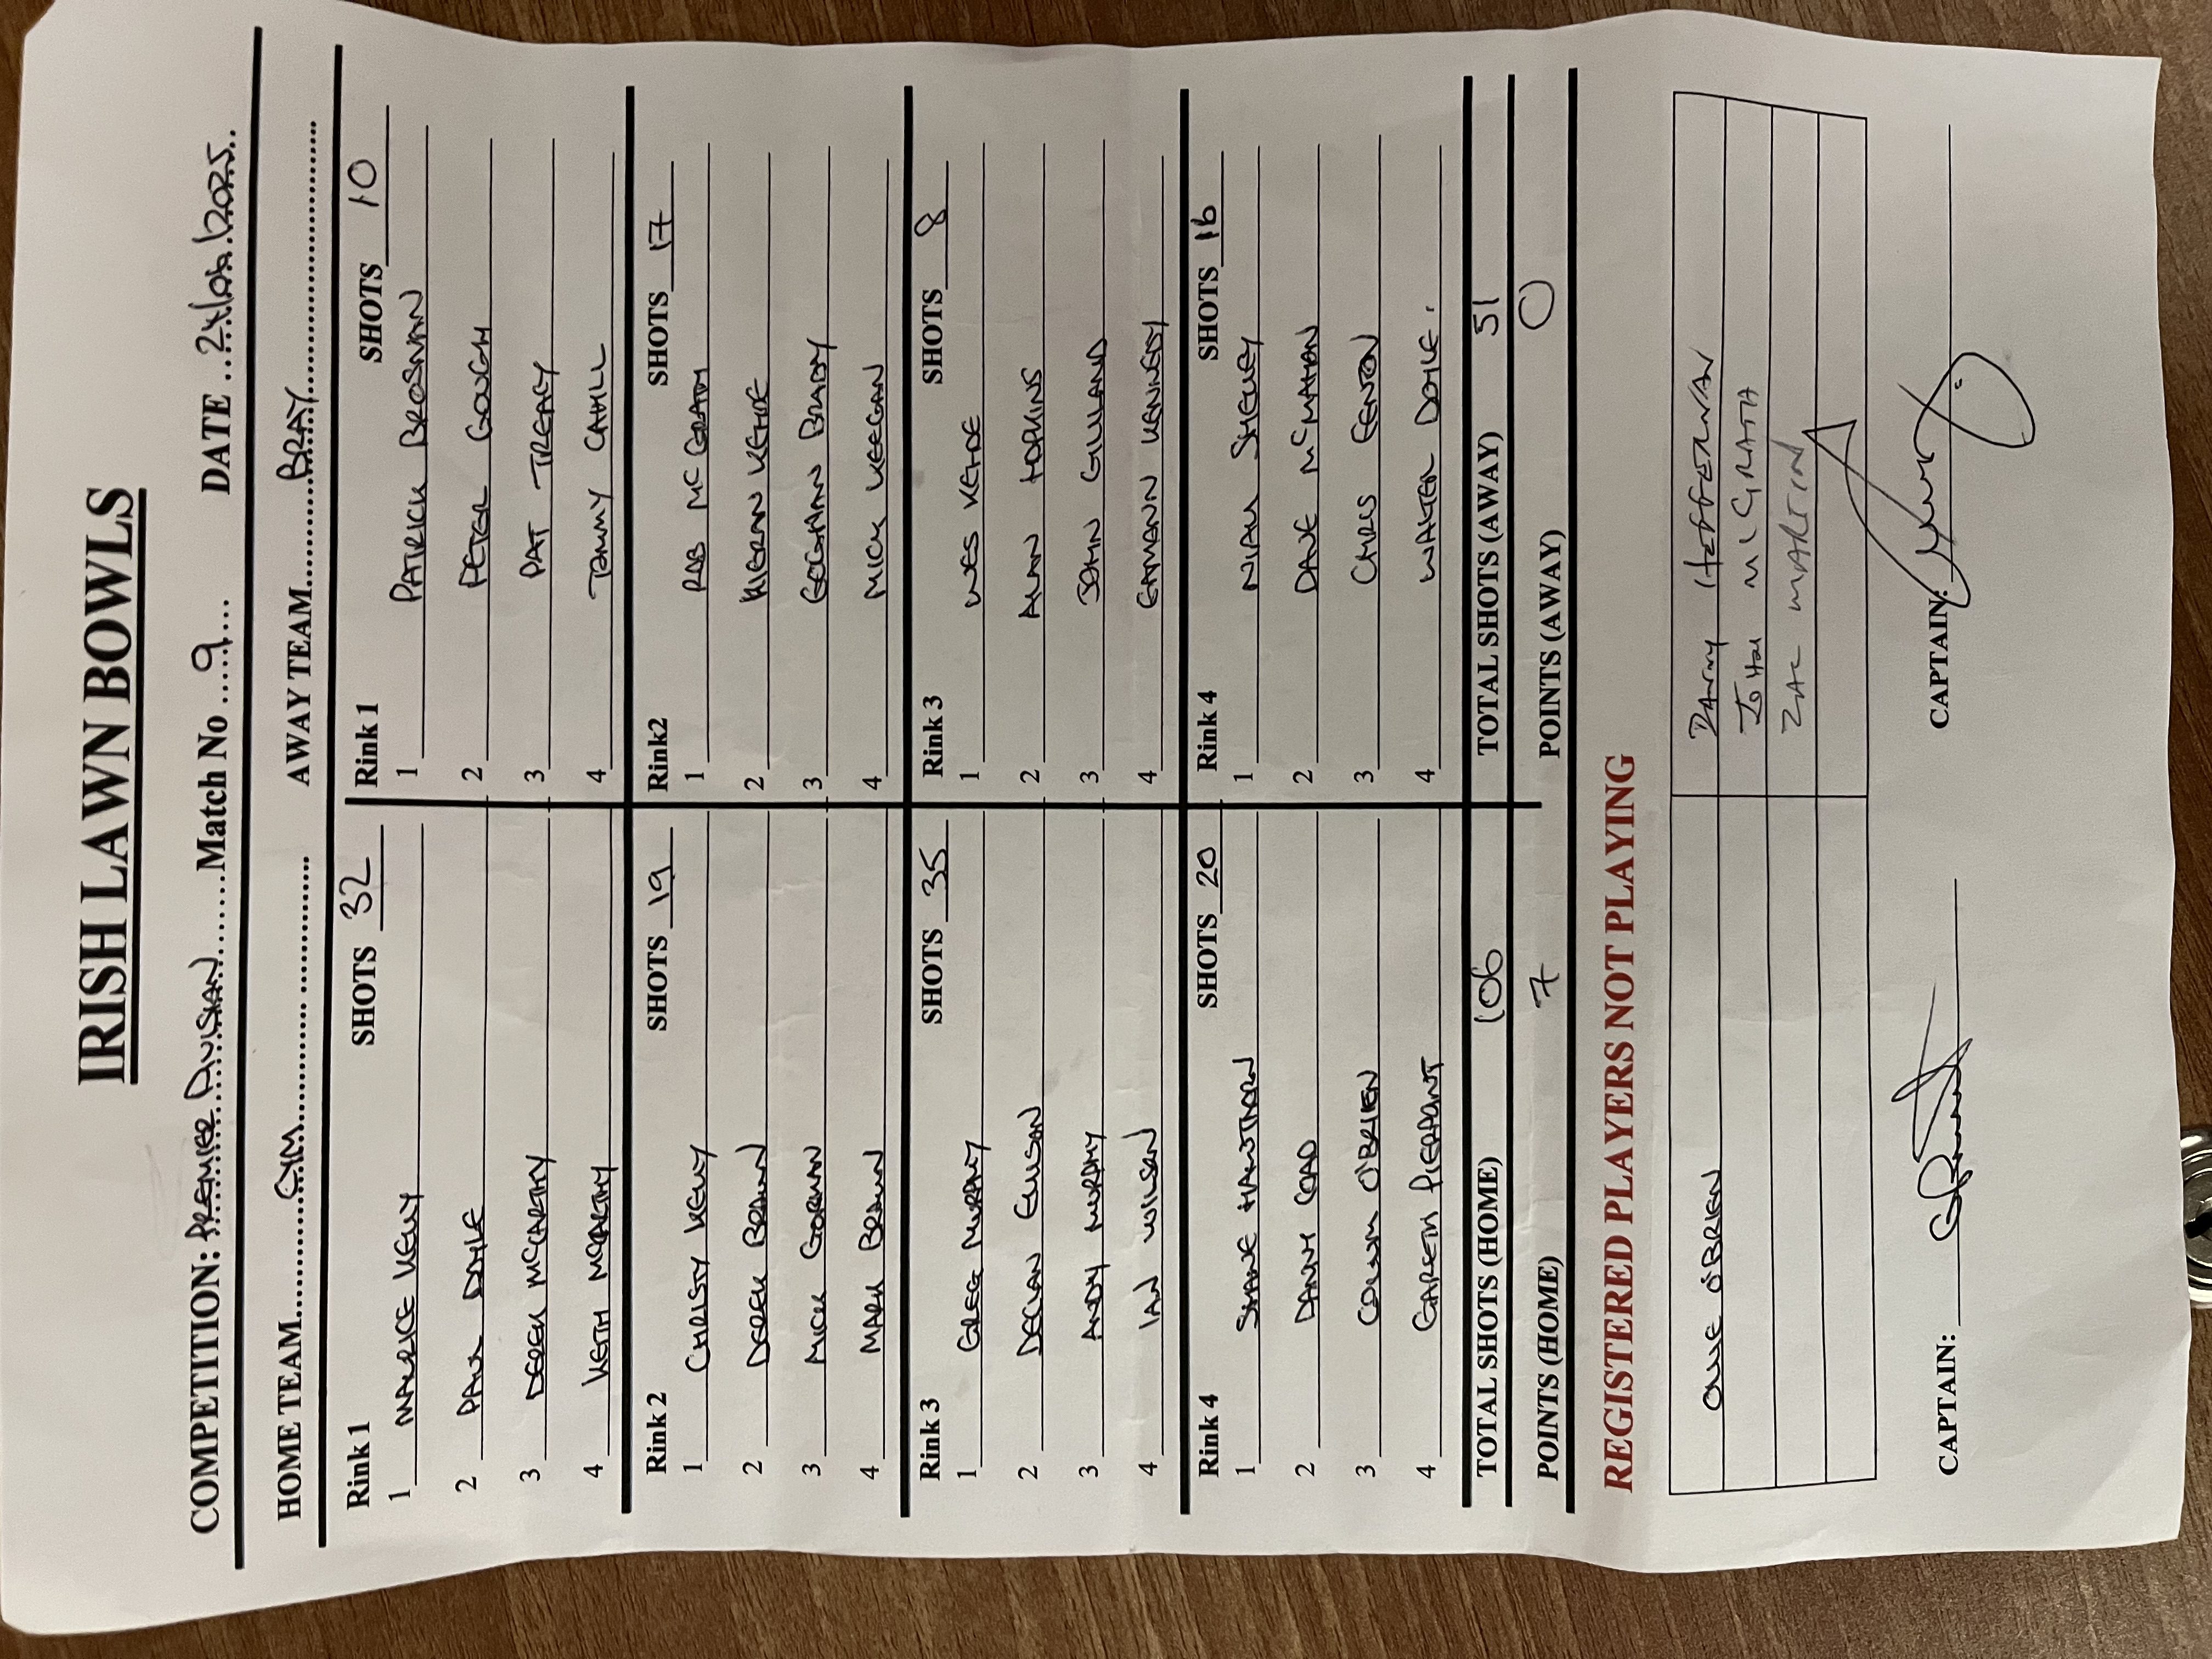 IRISH LAWN BOWLS
COMPETITION: PREMIER DIVISION Match No 9 DATE
HOME TEAM CYM AWAY TEAM BRAY
Rink 1 SHOTS 32 Rink 1 SHOTS 10
1 MAURICE KELLY 1 PATRICK BROSNAN
2 PAUL DOYLE 2 PETER GOUGH
3 DEREK MCCARTHY 3 PAT TREACY
4 KEITH MCCARTHY 4 TOMMY CAHILL
Rink 2 SHOTS 19 Rink2 SHOTS 17
1 CHRISTY KELLY 1 ROB MC GRATH
2 DEREK BROWN 2 KIERAN KEHOE
3 MICK GORMAN 3 GEOGHAN BRADY
4 MARK BROWN 4 MICK KEEGAN
Rink 3 SHOTS 35 Rink 3 SHOTS 8
1 GREG MURPHY 1 WES KEHOE
2 DECLAN ELLISON 2 ALAN HOPKINS
3 ANDY MURPHY 3 JOHN GILLILAND
4 IAN WILSON 4 EAMONN KENNEDY
Rink 4 SHOTS 20 Rink 4 SHOTS 16
1 SHANE HAWTHORN 1 NIALL SHELLEY
2 DANNY COAD 2 DAVE MCMAHON
3 COLUM O'BRIEN 3 CHRIS FENTON
4 GARETH PIERPOINT 4 WALTER DOYLE.
TOTAL SHOTS (HOME) 106 TOTAL SHOTS (AWAY) 51
POINTS (HOME) 7 POINTS (AWAY) 0
REGISTERED PLAYERS NOT PLAYING
OLLIE O'BRIEN DANNY HEFFERNAN
JOHN MCGRATH
ZAC MARTIN
CAPTAIN: CAPTAIN: